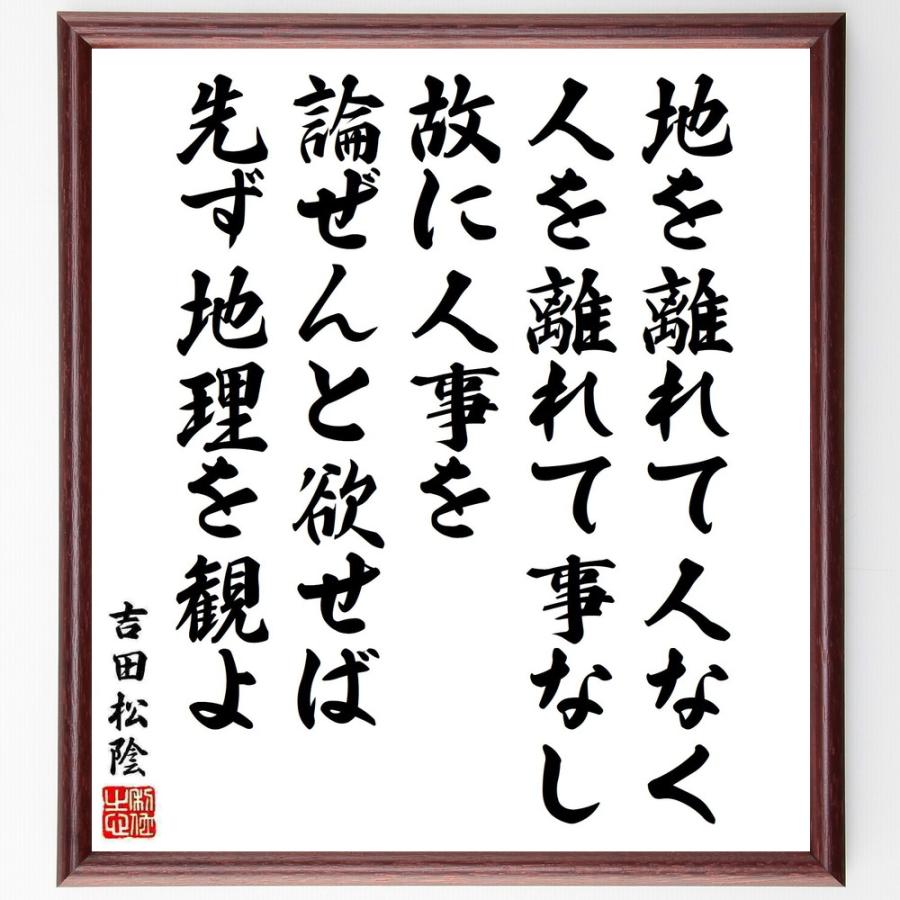 地を離れて人なく
人を離れて事なし
故に人事を
論ぜんと欲せば
先ず地理を観よ
吉田松陰